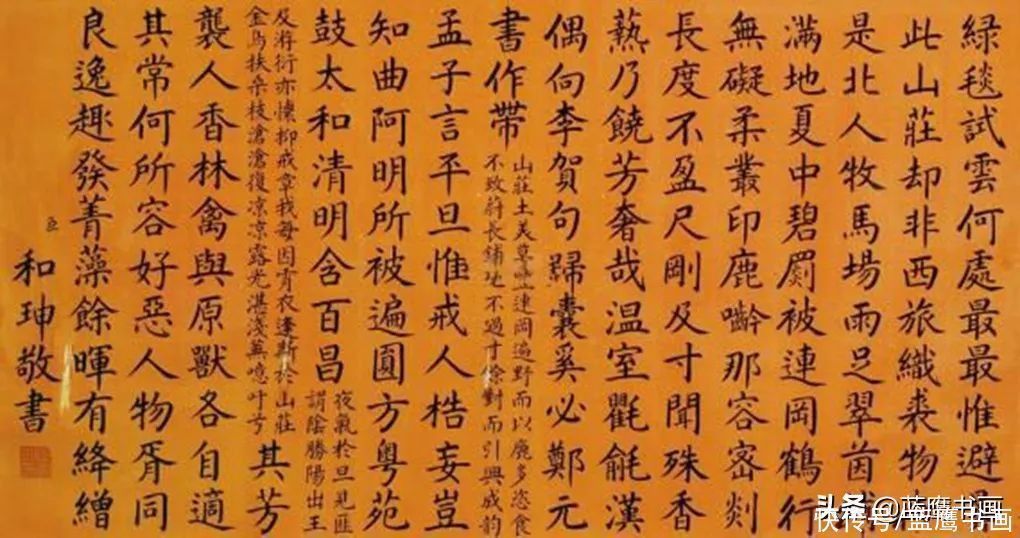 綠毯試雲何處最最惟避
此山莊却非西旅織裘物
是北人牧馬場雨足翠茵
滿地夏中碧罽被連岡鶴行
無礙柔叢印鹿嚙那容密剡
長度不盈尺剛及寸聞殊香
爇乃饒芳奢哉溫室氍毹漢
偶向李賀句歸囊奚必鄭元
書作帶
山莊土美草豐連岡遍野而以鹿多恣食
不致蔣長鋪地不過寸餘對而引興成韵
孟子言平旦惟戒人梏妄豈
知曲阿明所被遍圓方粤苑
鼓太和清明含百昌
夜氣於旦見匪
謂陰勝陽出王
及游衍亦懷抑戒章我每因宵衣逢斯於山莊
金烏扶桑枝滄滄復凉凉露光湛淺蕪噫叶兮
其芳
襲人香林禽與原獸各自適
其常何所容好惡人物胥同
良逸趣發菁藻餘暉有絳繒
臣
和珅敬書
头条 @蓝鹰书画
快传号/蓝鹰书画